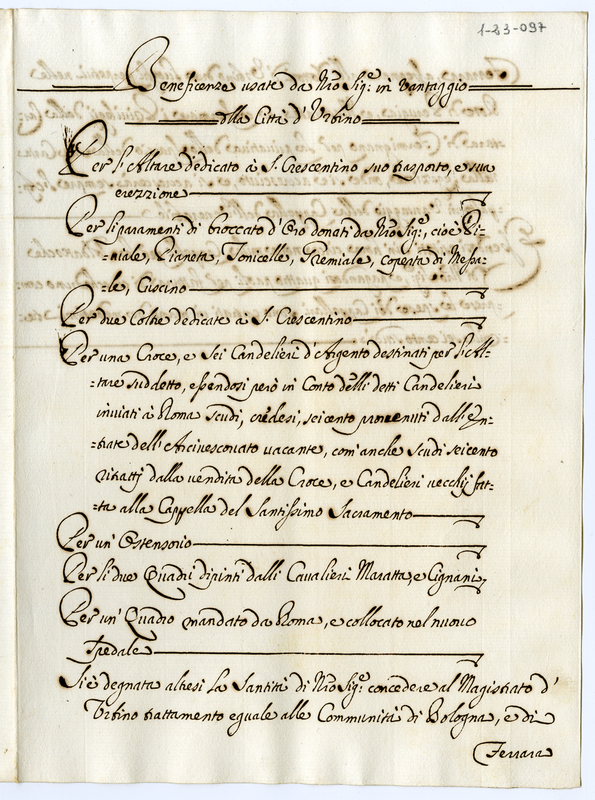 1-23-097
Beneficenze usate da Nro Sigre: in vantaggio
della Città d'Urbino
Per l'Altare dedicato à S. Crescentino suo trasporto, e sua
erezzione
Per li paramenti di broccato d'Oro donati da Nro Sigre:, cioè Pi-
-viale, Pianeta, Tonicelle, Gremiale, coperta di Messa-
-le, Cuscino
Per due Coltre dedicate à S. Crescentino
Per una Croce, e Sei Candelieri d'Argento destinati per l'Al-
-tare suddetto, essendosi però in Conto delli detti Candelieri
inviati à Roma scudi, credesi, seicento provenuti dall'En-
-trate dell'Arcivescovato vacante, com'anche scudi seicento
ritratti dalla vendita della Croce, e Candelieri vecchij fat-
-ta alla Cappella del Santissimo Sacramento
Per un' Ostensorio
Per li due Quadri dipinti dalli Cavalieri Maratta, e Cignani,
Per un' Quadro mandato da Roma, e collocato nel nuovo
Spedale
Si è degnata altresi La Santità di Nro Sigre: concedere al Magistrato d'
Urbino trattamento eguale alle Communità di Bologna, e di
Ferrara